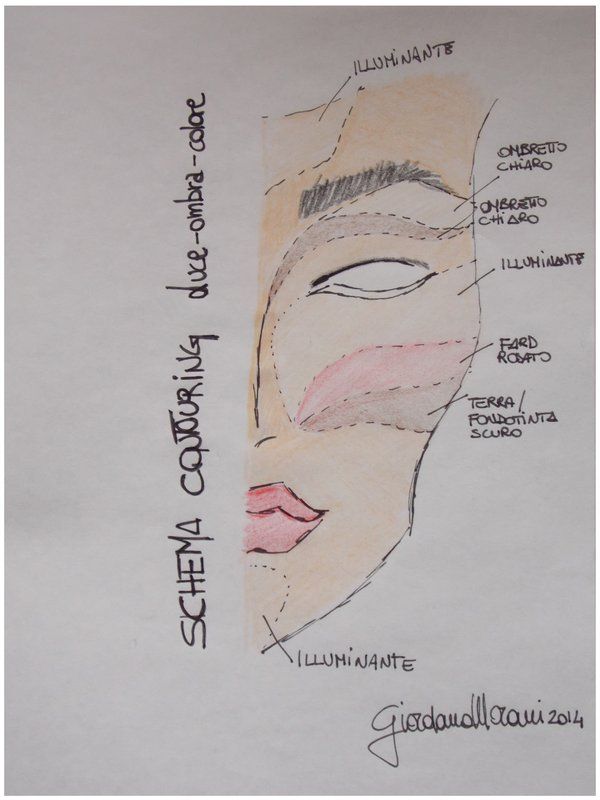 SCHEMA CONTOURING luce-ombra-colore
ILLUMINANTE
OMBRETTO
CHIARO
OMBRETTO
CHIARO
ILLUMINANTE
FARD
ROSATO
TERRA/
FONDOTINTA
SCURO
ILLUMINANTE
2014